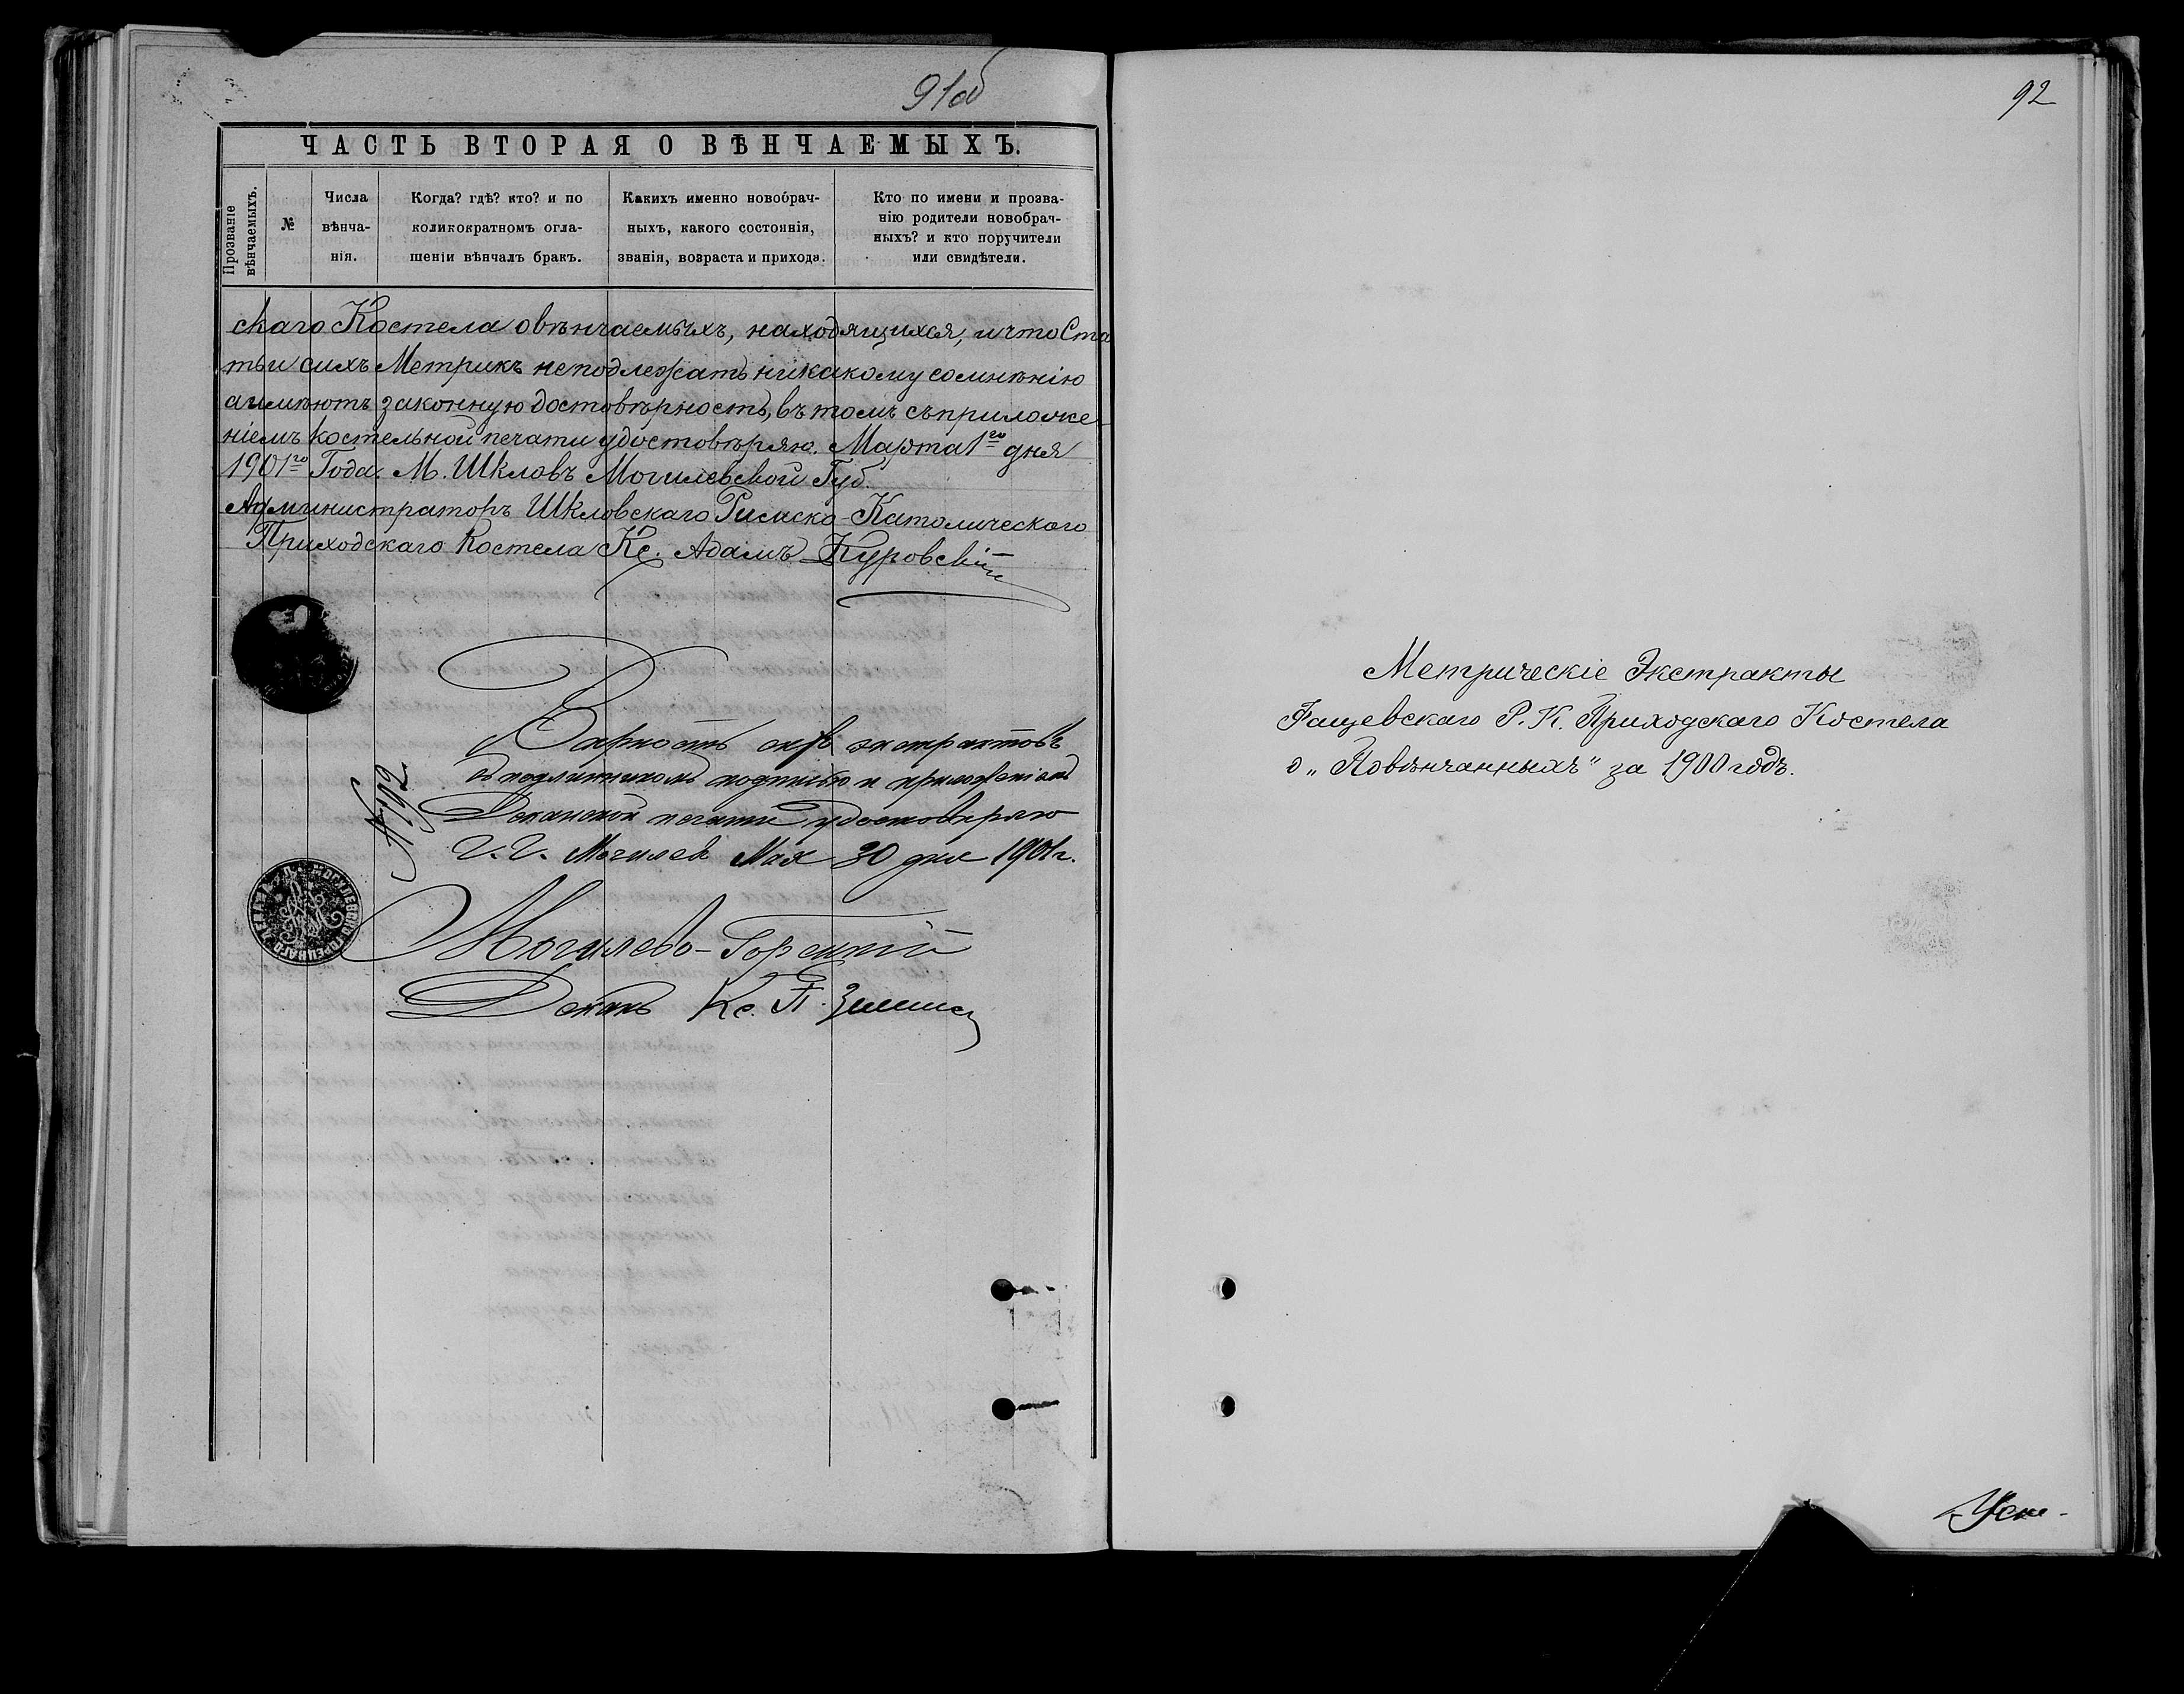 91об
ЧАСТЬ ВТОРАЯ О ВѢНЧАЕМЫХЪ.
Прозваніе вѣнчаемыхъ.
№
Числа вѣнча-
нія.
Когда? гдѣ? кто? и по
коликократномъ огла-
шеніи вѣнчалъ бракъ.
Какихъ именно новобрач-
ныхъ, какого состоянія,
званія, возраста и прихода.
Кто по имени и прозва-
нію родители новобрач-
ныхъ? и кто поручители
или свидѣтели.
скаго Костела о вѣнчаемыхъ, находящихся, и что Ста
тьи сихъ Метрикъ неподлежатъ никакому сомнѣнію
а имѣютъ законную достовѣрность, въ томъ съ приложе-
ніемъ костельной печати удостовѣряю. Марта 1го дня
1901го Года. М. Шкловъ Могилевской Губ.
Администраторъ Шкловскаго Римско-Католическаго
Приходскаго Костела Кс. Адамъ Куровскій
Вѣрность сихъ экстрактовъ
съ подлинникомъ подписью и приложеніемъ
Деканской печати удостовѣряю
Г. Г. Могилевъ Мая 30 дня 1901 г.
№ 192
Могилево-Горецкій
Деканъ Кс. П.
92
Метрическіе Экстракты
Фащевскаго Р. К. Приходскаго Костела
о „Повѣнчанныхъ" за 1900 годъ.